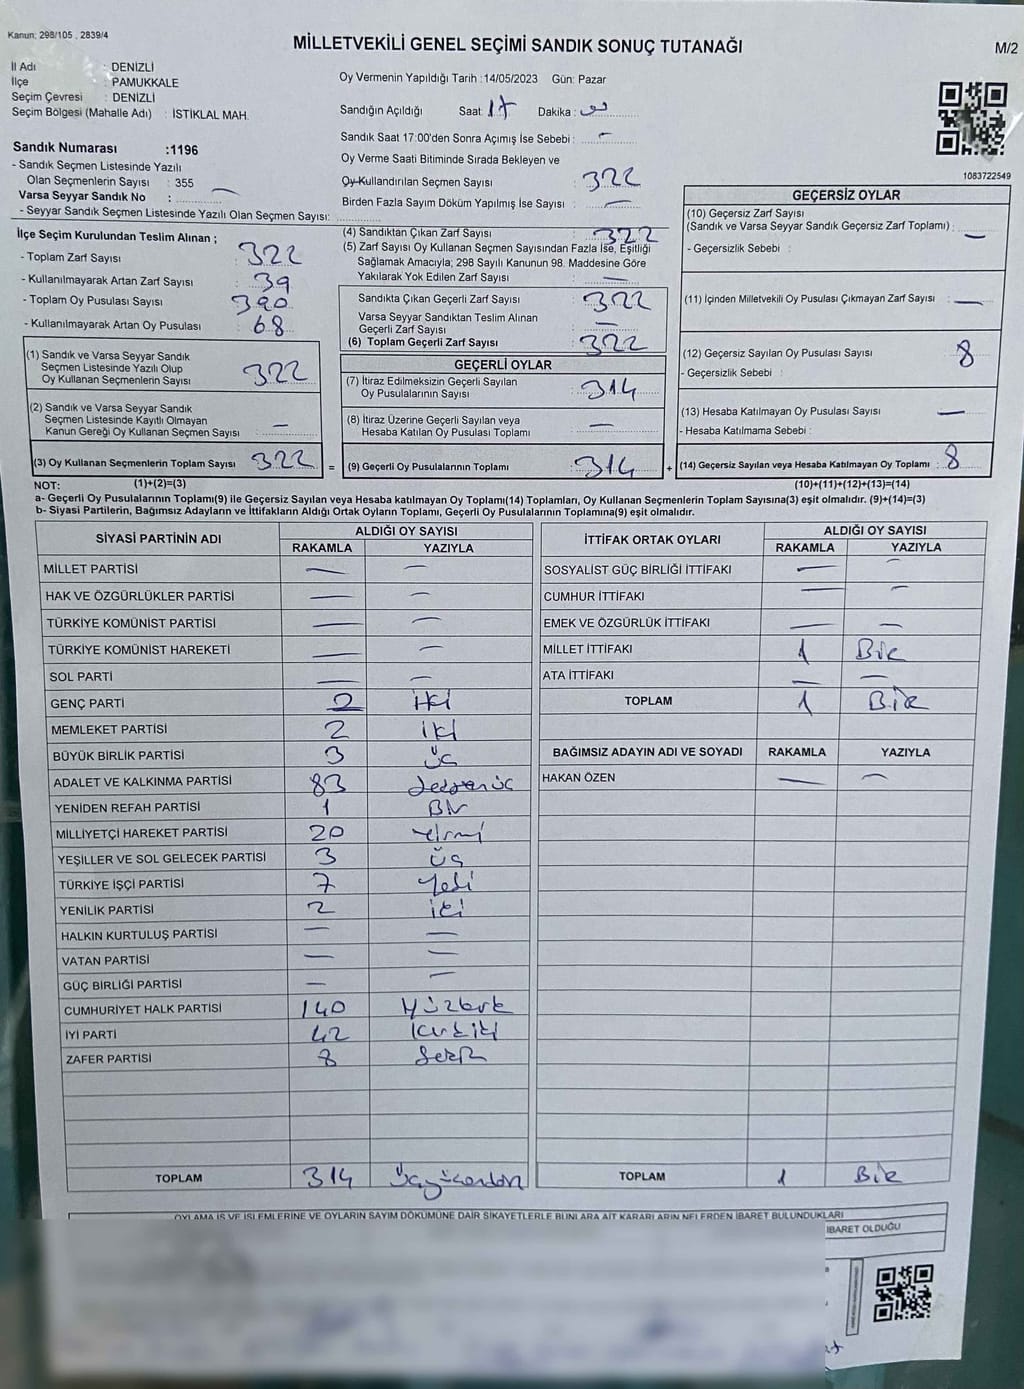 Kanun; 298/105 , 2839/4
MİLLETVEKİLİ GENEL SEÇİMİ SANDIK SONUÇ TUTANAĞI
M/2
İl Adı : DENİZLİ
İlçe : PAMUKKALE
Seçim Çevresi : DENİZLİ
Seçim Bölgesi (Mahalle Adı) : İSTİKLAL MAH.
Oy Vermenin Yapıldığı Tarih :14/05/2023 Gün: Pazar
Sandığın Açıldığı Saat: 17 Dakika :
Sandık Saat 17:00'den Sonra Açımış İse Sebebi : —
Oy Verme Saati Bitiminde Sırada Bekleyen ve
Oy Kullandırılan Seçmen Sayısı : 322
Birden Fazla Sayım Döküm Yapılmış İse Sayısı : —
1083722549
Sandık Numarası :1196
- Sandık Seçmen Listesinde Yazılı
Olan Seçmenlerin Sayısı : 355
Varsa Seyyar Sandık No : —
- Seyyar Sandık Seçmen Listesinde Yazılı Olan Seçmen Sayısı:
İlçe Seçim Kurulundan Teslim Alınan ;
- Toplam Zarf Sayısı : 322
- Kullanılmayarak Artan Zarf Sayısı : 39
- Toplam Oy Pusulası Sayısı : 390
- Kullanılmayarak Artan Oy Pusulası : 68
(1) Sandık ve Varsa Seyyar Sandık
Seçmen Listesinde Yazılı Olup
Oy Kullanan Seçmenlerin Sayısı : 322
(2) Sandık ve Varsa Seyyar Sandık
Seçmen Listesinde Kayıtlı Olmayan
Kanun Gereği Oy Kullanan Seçmen Sayısı : —
(3) Oy Kullanan Seçmenlerin Toplam Sayısı : 322 =
(4) Sandıktan Çıkan Zarf Sayısı : 322
(5) Zarf Sayısı Oy Kullanan Seçmen Sayısından Fazla İse, Eşitliği
Sağlamak Amacıyla; 298 Sayılı Kanunun 98. Maddesine Göre
Yakılarak Yok Edilen Zarf Sayısı : —
Sandıkta Çıkan Geçerli Zarf Sayısı : 322
Varsa Seyyar Sandıktan Teslim Alınan
Geçerli Zarf Sayısı : —
(6) Toplam Geçerli Zarf Sayısı : 322
GEÇERLİ OYLAR
(7) İtiraz Edilmeksizin Geçerli Sayılan
Oy Pusulalarının Sayısı : 314
(8) İtiraz Üzerine Geçerli Sayılan veya
Hesaba Katılan Oy Pusulası Toplamı : —
(9) Geçerli Oy Pusulalarının Toplamı : 314 +
GEÇERSİZ OYLAR
(10) Geçersiz Zarf Sayısı
(Sandık ve Varsa Seyyar Sandık Geçersiz Zarf Toplamı) : —
- Geçersizlik Sebebi :
(11) İçinden Milletvekili Oy Pusulası Çıkmayan Zarf Sayısı : —
(12) Geçersiz Sayılan Oy Pusulası Sayısı : 8
- Geçersizlik Sebebi :
(13) Hesaba Katılmayan Oy Pusulası Sayısı : —
- Hesaba Katılmama Sebebi :
(14) Geçersiz Sayılan veya Hesaba Katılmayan Oy Toplamı : 8
NOT: (1)+(2)=(3) (10)+(11)+(12)+(13)=(14)
a- Geçerli Oy Pusulalarının Toplamı(9) ile Geçersiz Sayılan veya Hesaba katılmayan Oy Toplamı(14) Toplamları, Oy Kullanan Seçmenlerin Toplam Sayısına(3) eşit olmalıdır. (9)+(14)=(3)
b- Siyasi Partilerin, Bağımsız Adayların ve İttifakların Aldığı Ortak Oyların Toplamı, Geçerli Oy Pusulalarının Toplamına(9) eşit olmalıdır.
SİYASİ PARTİNİN ADI ALDIĞI OY SAYISI
RAKAMLA YAZIYLA
MİLLET PARTİSİ — —
HAK VE ÖZGÜRLÜKLER PARTİSİ — —
TÜRKİYE KOMÜNİST PARTİSİ — —
TÜRKİYE KOMÜNİST HAREKETİ — —
SOL PARTİ — —
GENÇ PARTİ 2 iki
MEMLEKET PARTİSİ 2 iki
BÜYÜK BİRLİK PARTİSİ 3 üç
ADALET VE KALKINMA PARTİSİ 83 seksenüç
YENİDEN REFAH PARTİSİ 1 Bir
MİLLİYETÇİ HAREKET PARTİSİ 20 yirmi
YEŞİLLER VE SOL GELECEK PARTİSİ 3 üç
TÜRKİYE İŞÇİ PARTİSİ 7 yedi
YENİLİK PARTİSİ 2 iki
HALKIN KURTULUŞ PARTİSİ — —
VATAN PARTİSİ — —
GÜÇ BİRLİĞİ PARTİSİ — —
CUMHURİYET HALK PARTİSİ 140 Yüzkırk
İYİ PARTİ 42 Kırkiki
ZAFER PARTİSİ 8 Sekiz
TOPLAM 314 Üçyüzondört
İTTİFAK ORTAK OYLARI ALDIĞI OY SAYISI
RAKAMLA YAZIYLA
SOSYALİST GÜÇ BİRLİĞİ İTTİFAKI — —
CUMHUR İTTİFAKI — —
EMEK VE ÖZGÜRLÜK İTTİFAKI — —
MİLLET İTTİFAKI 1 Bir
ATA İTTİFAKI — —
TOPLAM 1 Bir
BAĞIMSIZ ADAYIN ADI VE SOYADI RAKAMLA YAZIYLA
HAKAN ÖZEN — —
TOPLAM 1 Bir
OYLAMA İŞ VE İŞLEMLERİNE VE OYLARIN SAYIM DÖKÜMÜNE DAİR ŞİKAYETLERLE BUNLARA AİT KARARLARIN NELERDEN İBARET BULUNDUKLARI
İBARET OLDUĞU